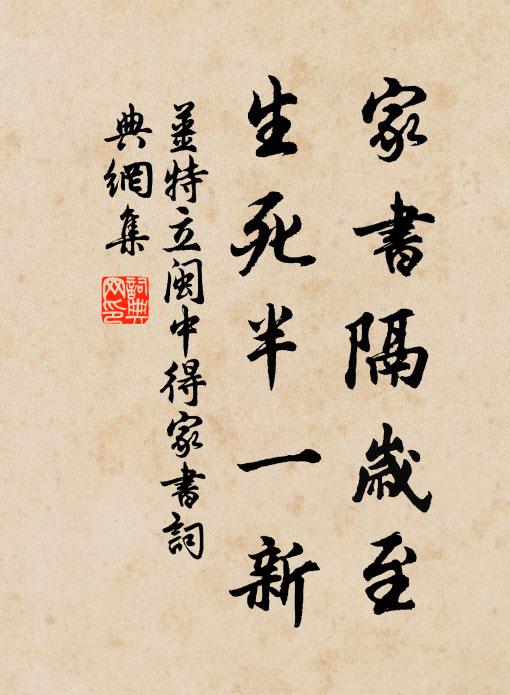 家書隔歲至
生死半一新
姜特立閩中得家書詞
典網集
詞典網印